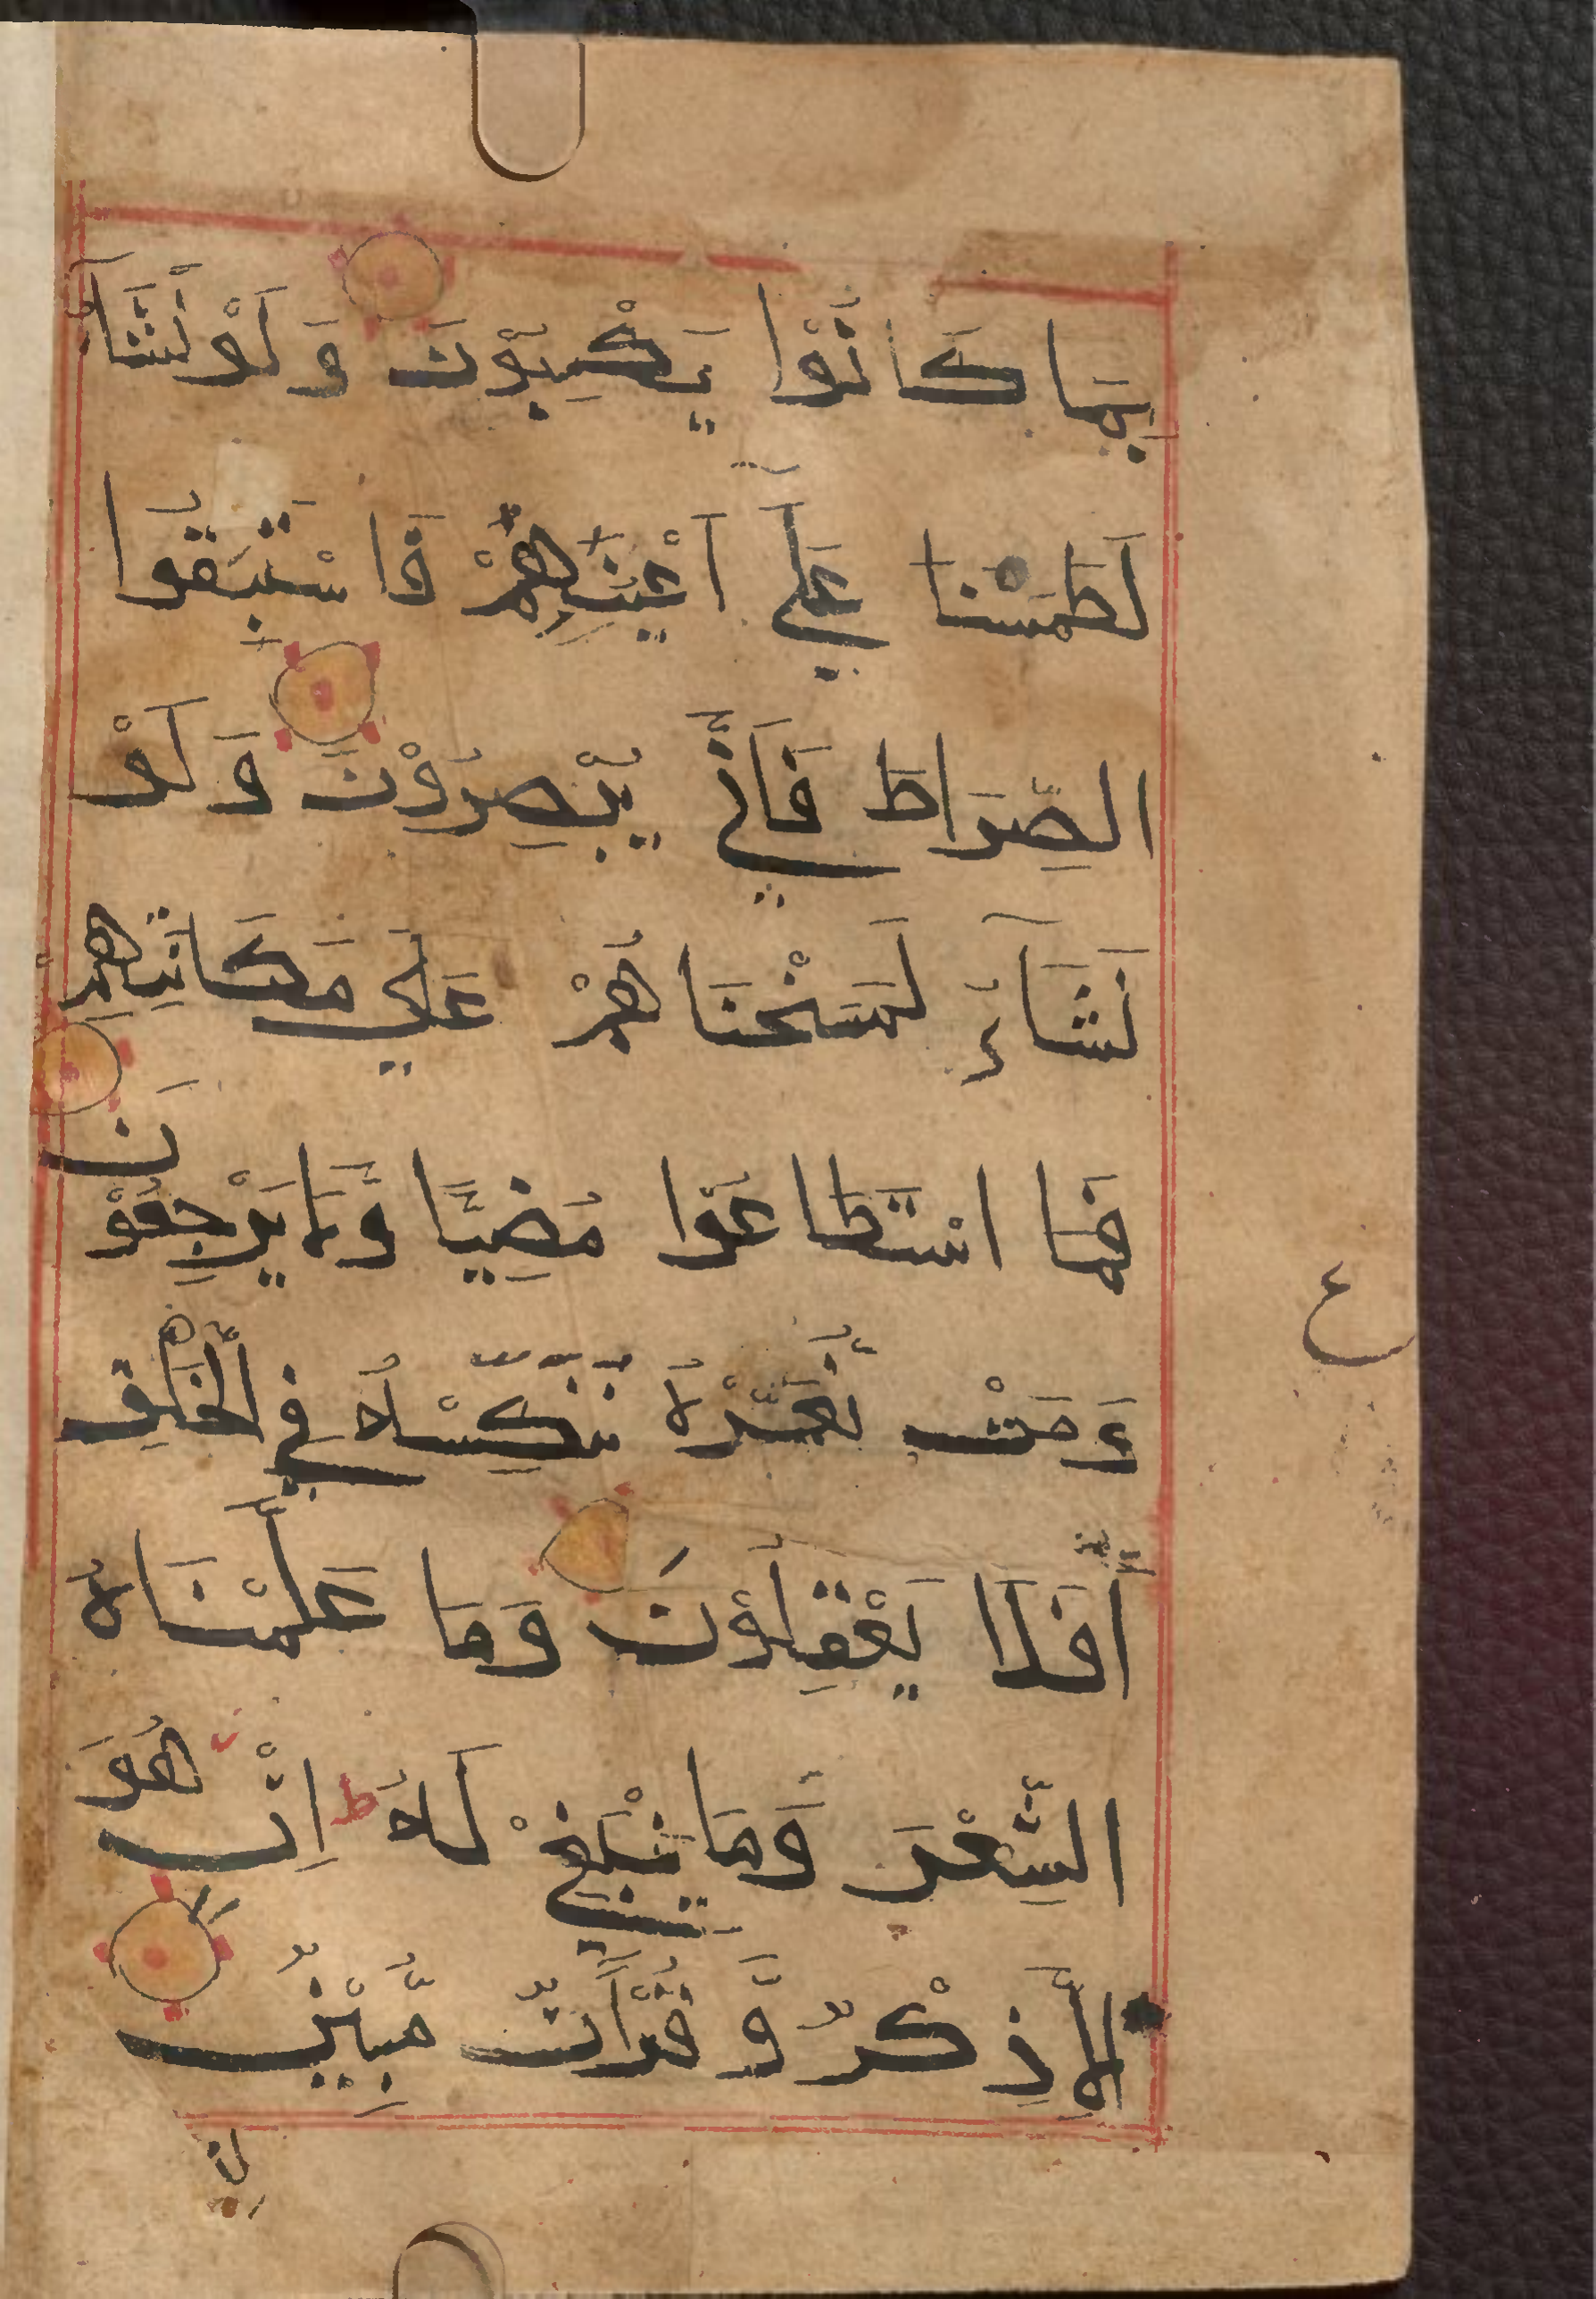 بِمَا كَانُوْا يَكْسِبُوْنَ وَلَوْ نَشَآءُ
لَطَمَسْنَا عَلٰٓي اَعْيُنِهِمْ فَاسْتَبَقُوا
الصِّرَاطَ فَاَنّٰي يُبْصِرُوْنَ وَلَوْ
نَشَآءُ لَمَسَخْنَاهُمْ عَلٰي مَكَانَتِهِمْ
فَمَا اسْتَطَاعُوا مُضِيًّا وَّلَا يَرْجِعُوْنَ
وَمَنْ نُعَمِّرْهُ نُنَكِّسْهُ فِي الْخَلْقِ
اَفَلَا يَعْقِلُوْنَ وَمَا عَلَّمْنَاهُ
الشِّعْرَ وَمَا يَنْۢبَغِيْ لَهُ ط اِنْ هُوَ
اِلَّا ذِكْرٌ وَّقُرْاٰنٌ مُّبِيْنٌ
ع
لِّيُ